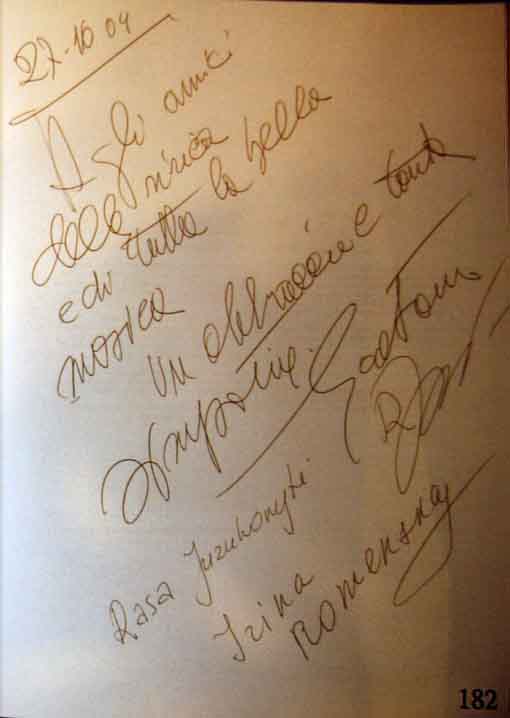 22-10 04
Agli amici
della lirica
e di tutta la bella
musica
un abbraccio e tanta
simpatia. Gaetano
Rasa Juzukonytė
Irina
Romenskaya
182